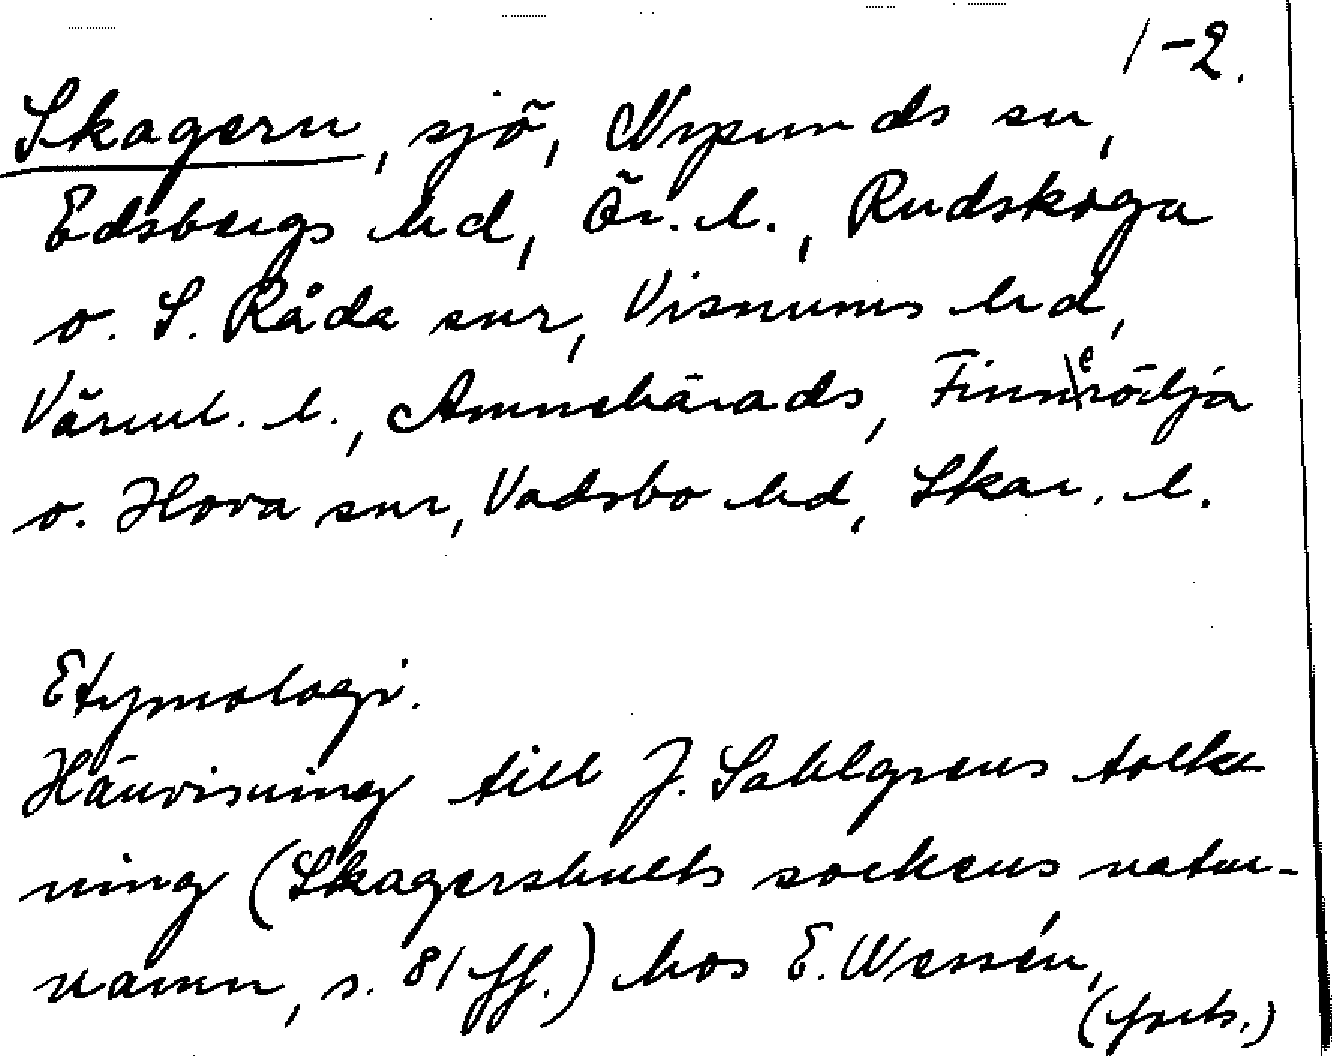 1-2.
Skagern, sjö, Nysunds sn,
Edsbergs hd, Ör. l., Rudskoga
o. S. Råda snr, Visnums hd,
Värml. l., Amnehärads, Finnerödja
o. Hova snr, Vadsbo hd, Skar. l.
Etymologi.
Hänvisning till J. Sahlgrens tolk-
ning (Skagershults sockens natur-
namn, s. 81 ff.) hos E. Wessén,
(forts.)